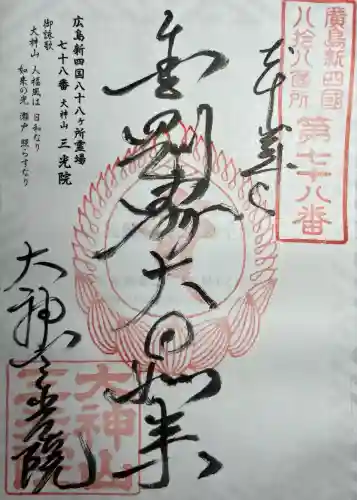 廣島新四國
八拾八箇所
第七十八番
奉拝
金剛界大日如来
大神山三光院
大神山
三光院
広島新四国八十八ヶ所霊場
七十八番 大神山 三光院
御詠歌
大神山 人福風は 日和なり
如来の光 瀬戸 照らすなり